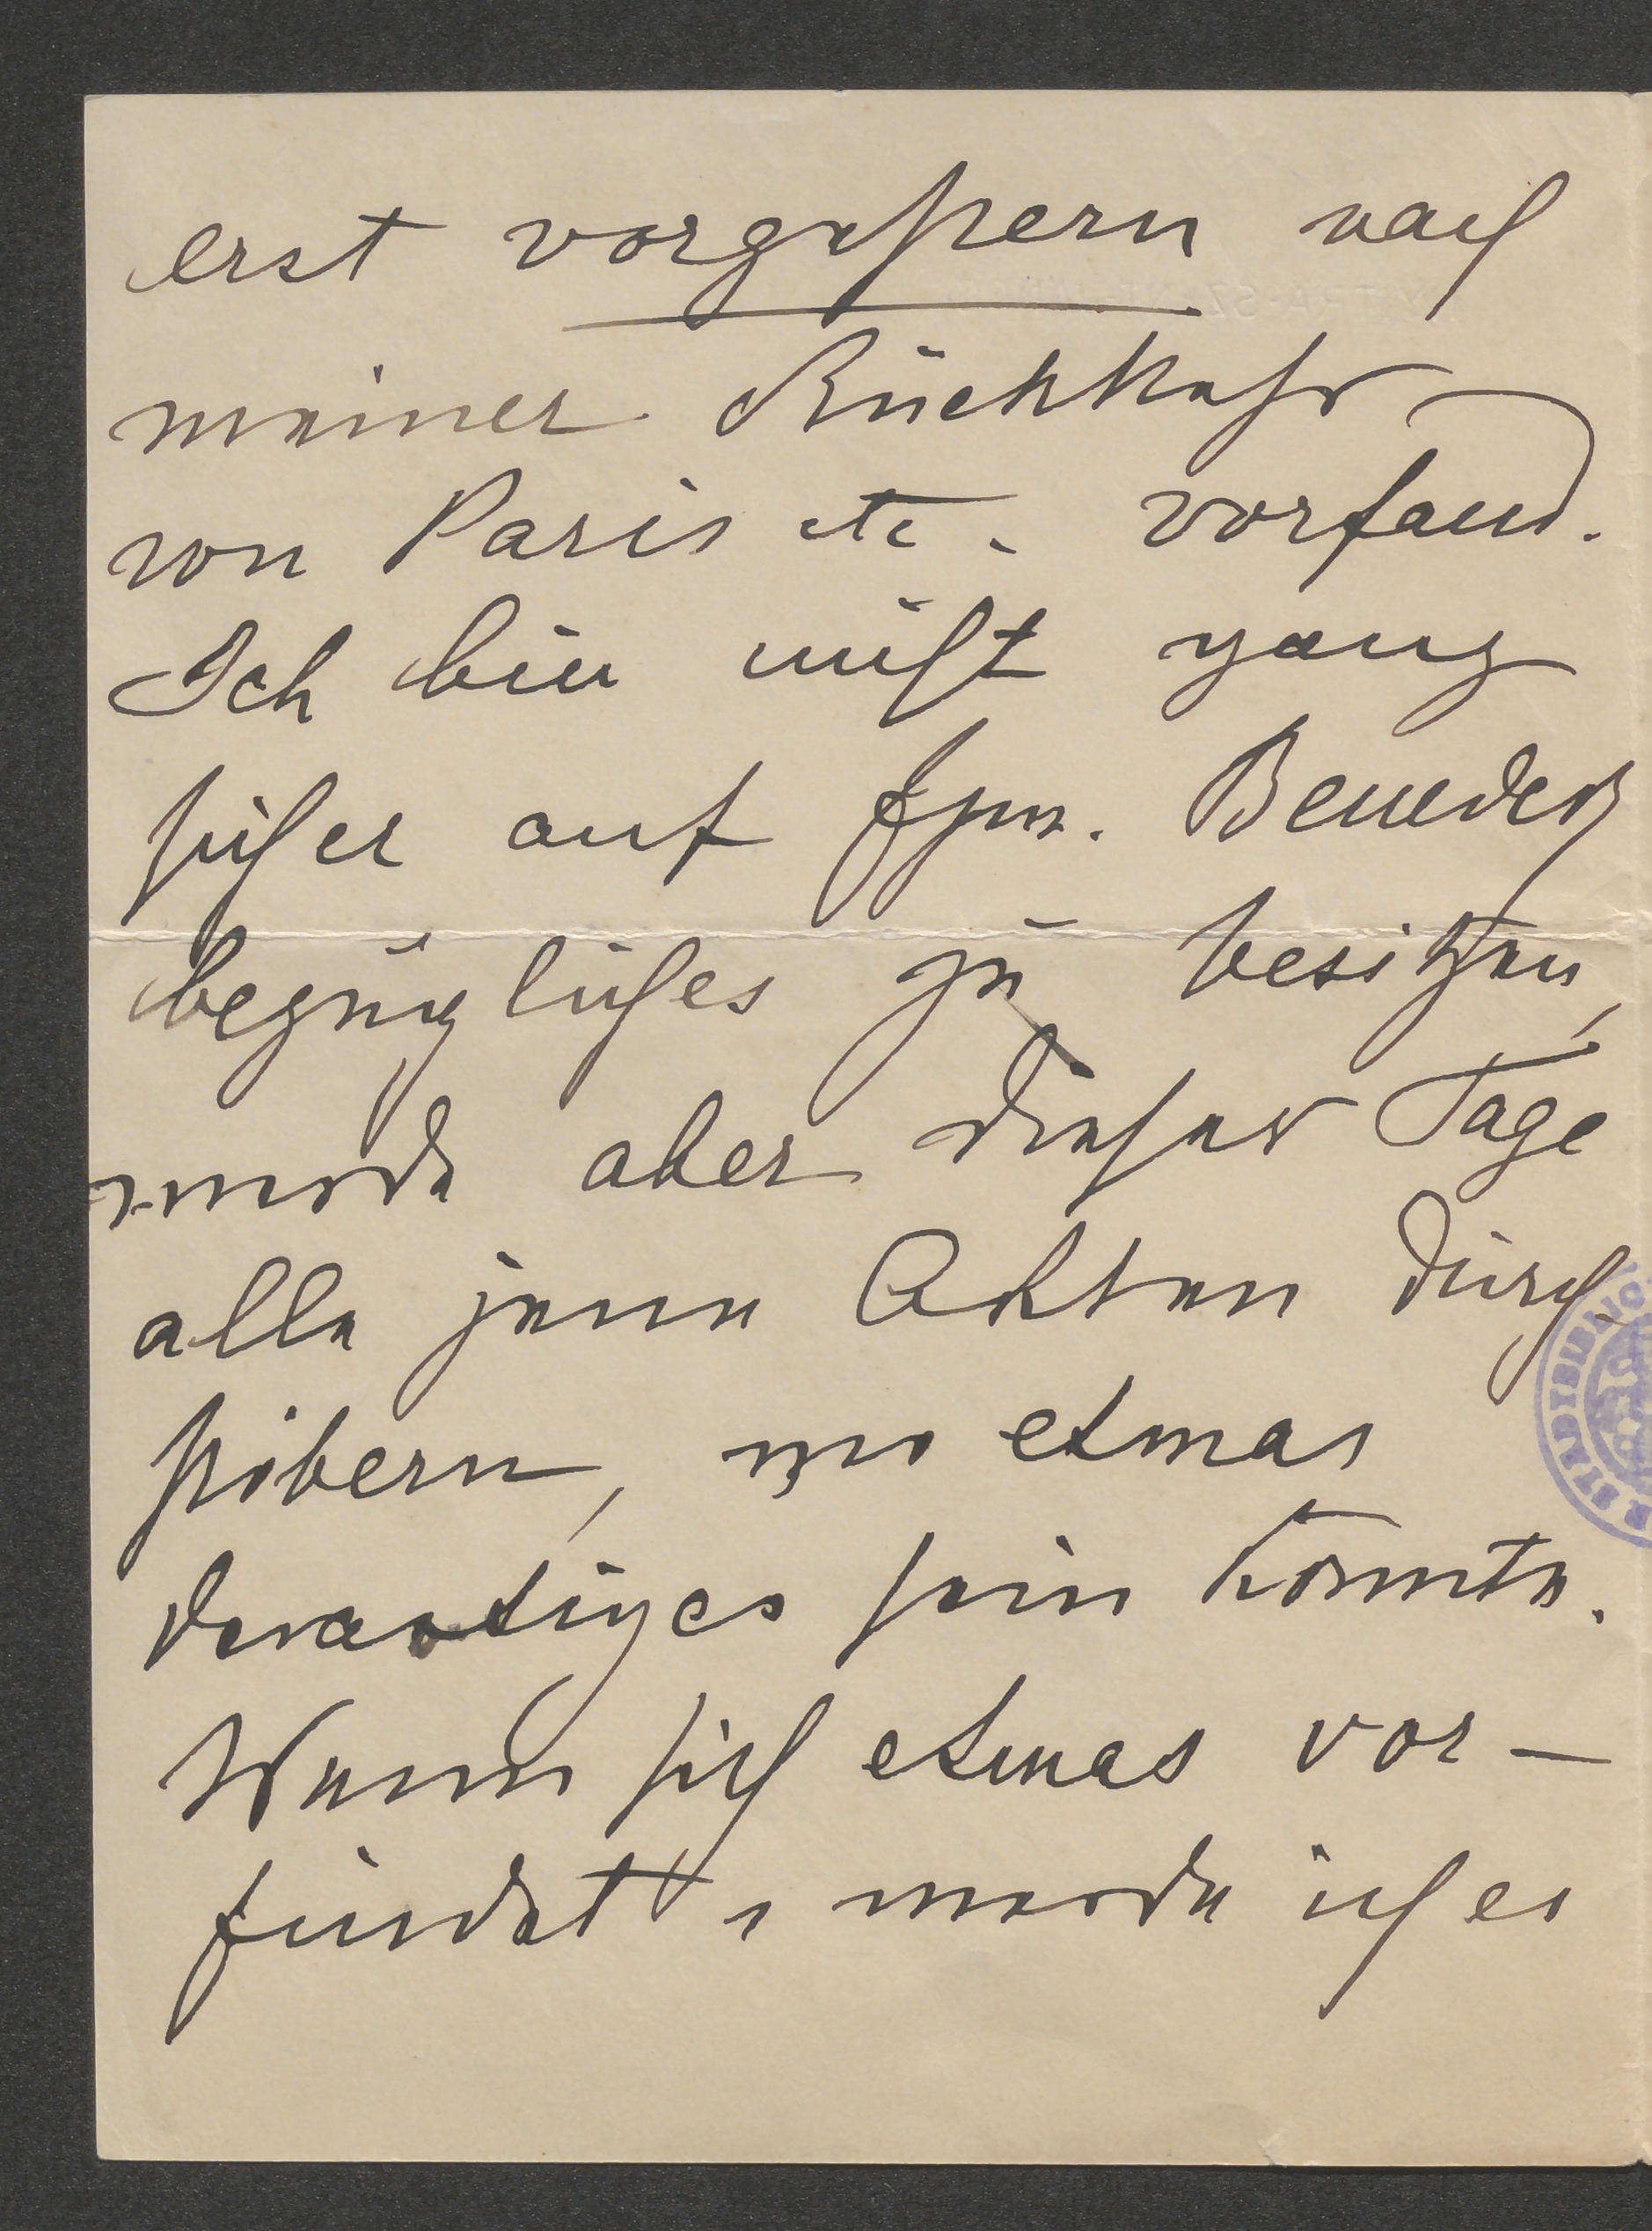 erst vorgestern nach
meiner Rückkehr
von Paris etc. vorfand.
Ich bin nicht ganz
sicher auf Benedek
bezügliches zu besitzen,
werde aber dieser Tage
alle jene Akten durch
stöbern, wo etwas
derartiges sein könnte.
Wenn sich etwas vor-
findet, werde ich es